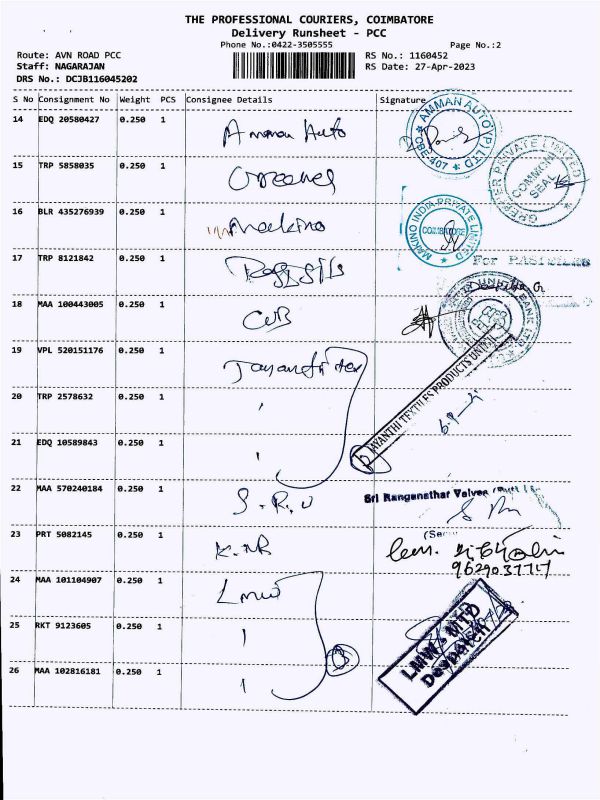 THE PROFESSIONAL COURIERS, COIMBATORE
Delivery Runsheet - PCC
Phone No.:0422-3505555 Page No.:2
Route: AVN ROAD PCC RS No.: 1160452
Staff: NAGARAJAN RS Date: 27-Apr-2023
DRS No.: DCJB116045202
S No Consignment No Weight PCS Consignee Details Signature
14 EDQ 20580427 0.250 1 Amman Auto
AMMAN AUTO PVT LTD
15 TRP 5858035 0.250 1
PRIVATE LIMITED
COMMON SEAL
16 BLR 435276939 0.250 1 Makino
MAKINO INDIA PRIVATE LIMITED
COIMBATORE
17 TRP 8121842 0.250 1
For
18 MAA 100443005 0.250 1 CUB
UNION BANK LTD
19 VPL 520151176 0.250 1 Jayanthi Tex
JAYANTHI TEXTILES PRODUCTS UNIT
20 TRP 2578632 0.250 1
21 EDQ 10589843 0.250 1
22 MAA 570240184 0.250 1 S.R.V
Sri Ranganathar Valves
23 PRT 5082145 0.250 1 K.NR
9629037717
24 MAA 101104907 0.250 1 LMW
25 RKT 9123605 0.250 1
LMW - MTD
Despatch
26 MAA 102816181 0.250 1